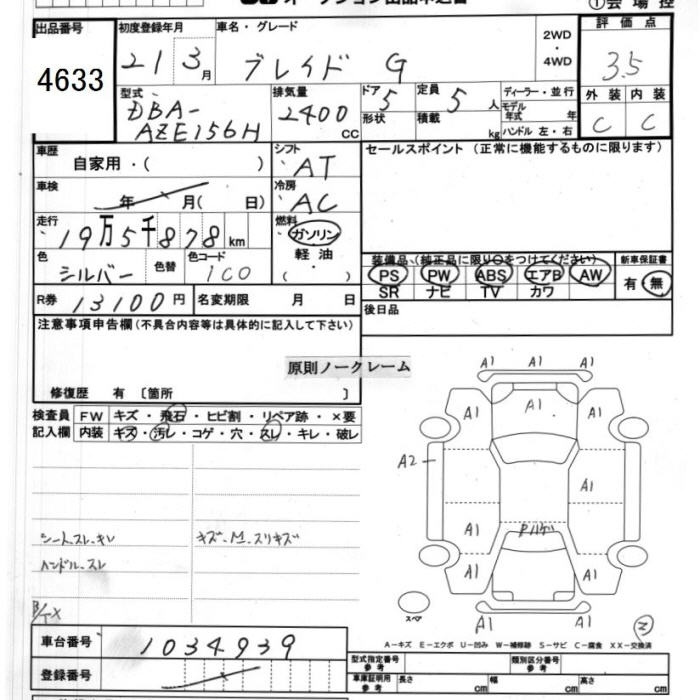 ①会場控
出品番号 初度登録年月 車名・グレード 評価点
4633
21 3月 ブレイド G 2WD・4WD 3.5
型式 排気量 ドア 定員 ディーラー・並行 外装 内装
DBA-AZE156H 2400cc 5 5人 モデル年式 年 C C
形状 積載 kg ハンドル 左・右
車歴 シフト セールスポイント (正常に機能するものに限ります)
自家用・( ) AT
車検 冷房
年 月( 日) AC
走行 燃料
19万5千878km ガソリン
軽油
・( )
色 色替 色コード
シルバー 1C0
装備品(純正品に限り○をつけてください) 新車保証書
PS PW ABS エアB AW 有・無
SR ナビ TV カワ
R券 13100円 名変期限 月 日 後日品
注意事項申告欄(不具合内容等は具体的に記入して下さい)
原則ノークレーム
修復歴 有 〔箇所 〕
検査員 FW キズ・飛石・ヒビ割・リペア跡・×要
記入欄 内装 キズ・汚レ・コゲ・穴・スレ・キレ・破レ
A1 A1 A1
A1 A1 A1
A2 A1
A1 A1
A1 A1
A1 A1
シートスレ・キレ キズ・M.スリキズ
ハンドル・スレ
スペア
車台番号 1034939
A-キズ E-エクボ U-凹み W-補修跡 S-サビ C-腐食 XX-交換済
登録番号
型式指定番号 参考 類別区分番号 参考
車庫証明用 参考 長さ cm 幅 cm 高さ cm